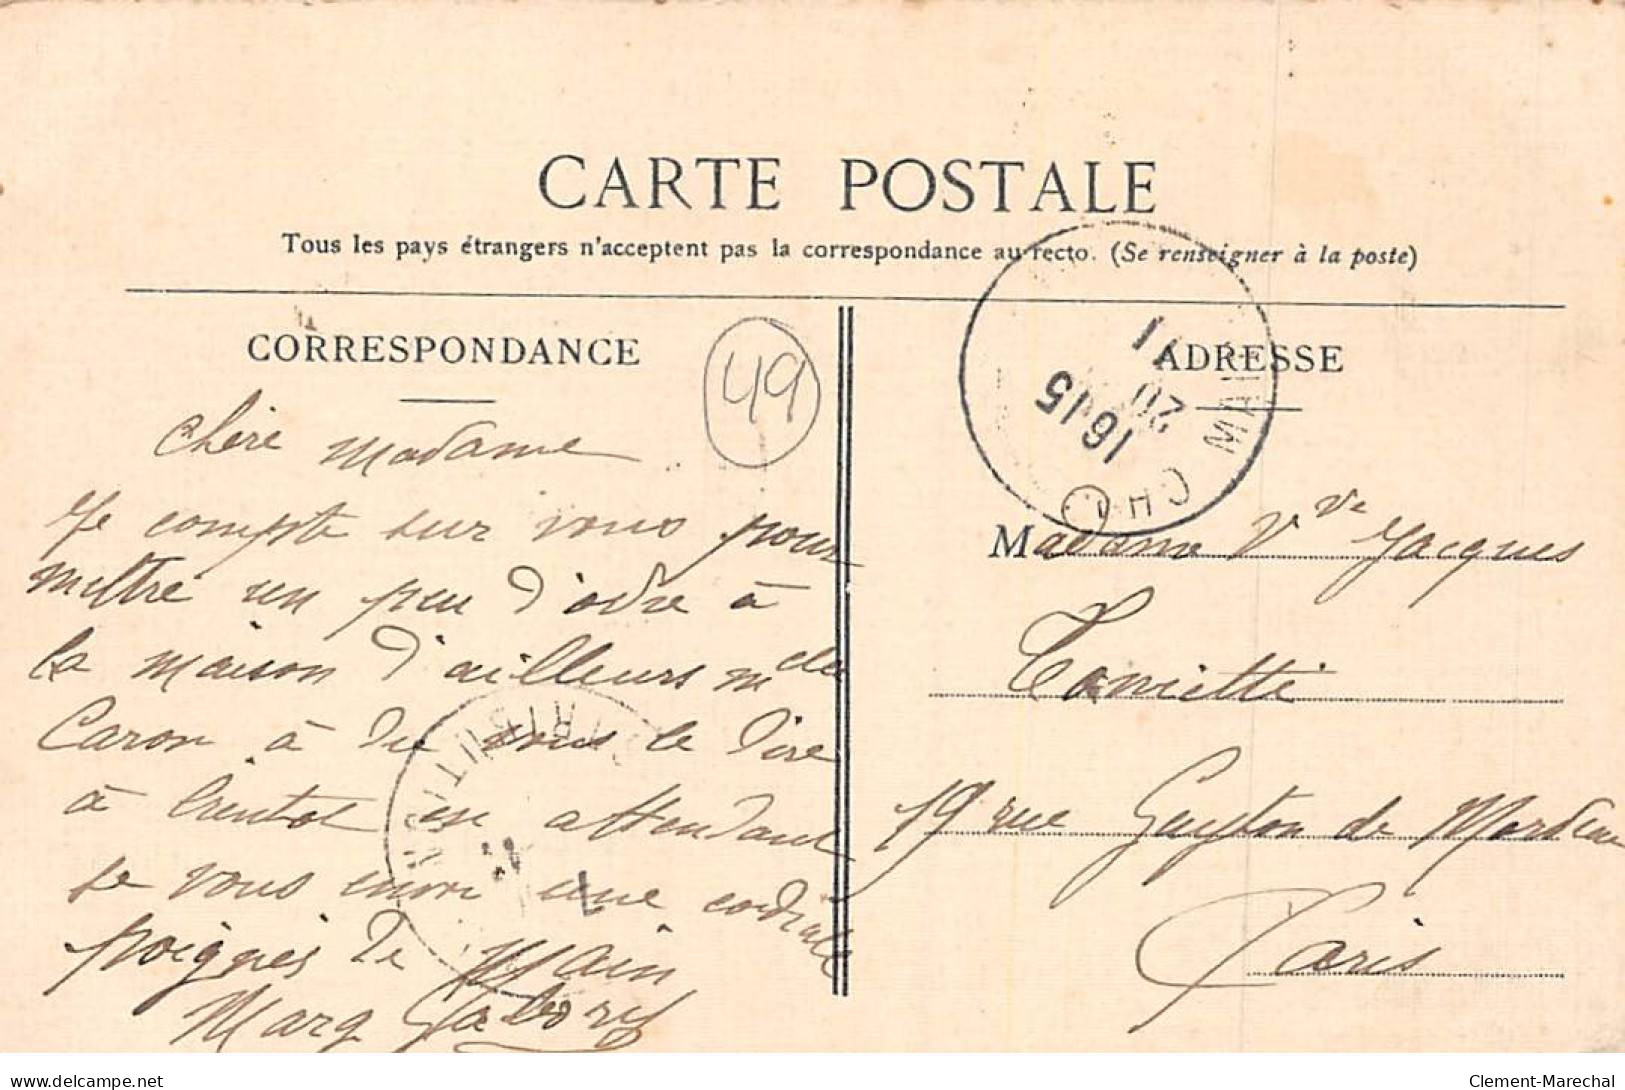 CARTE POSTALE
Tous les pays étrangers n'acceptent pas la correspondance au recto. (Se renseigner à la poste)
CORRESPONDANCE
49
ADRESSE
16 15
20
11
CHOL MAI
chère Madame
Je compte sur vous pour
mettre un peu d'odre à
la maison d'ailleurs Mde
Caron à du vous le dire
à bientot en attendant
je vous envoi une cordiale
poignés de Main
Marg
DISTRIBUTION
Madame Vve Jacques
19 rue Guyton de Mordeau
Paris
delcampe.net
Clement-Marechal